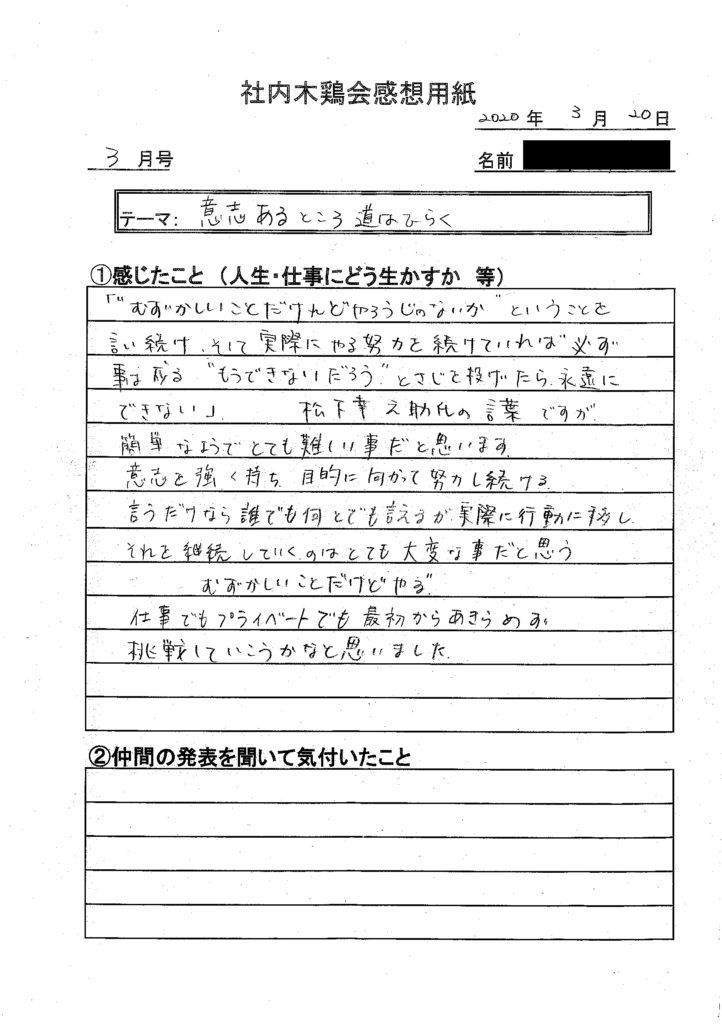 社内木鶏会感想用紙
2020年 3月 20日
3月号
名前
テーマ: 意志あるところ道はひらく
①感じたこと (人生・仕事にどう生かすか 等)
「"むずかしいことだけれどやろうじゃないか"ということを
言い続け、そして実際にやる努力を続けていれば必ず
事は成る "もうできないだろう"とさじを投げたら、永遠に
できない」 松下幸之助氏の言葉ですが
簡単なようでとても難しい事だと思います。
意志を強く持ち、目的に向かって努力し続ける
言うだけなら誰でも何とでも言えるが実際に行動に移し、
それを継続していくのはとても大変な事だと思う
むずかしいことだけどやる"
仕事でもプライベートでも最初からあきらめず
挑戦していこうかなと思いました。
②仲間の発表を聞いて気付いたこと